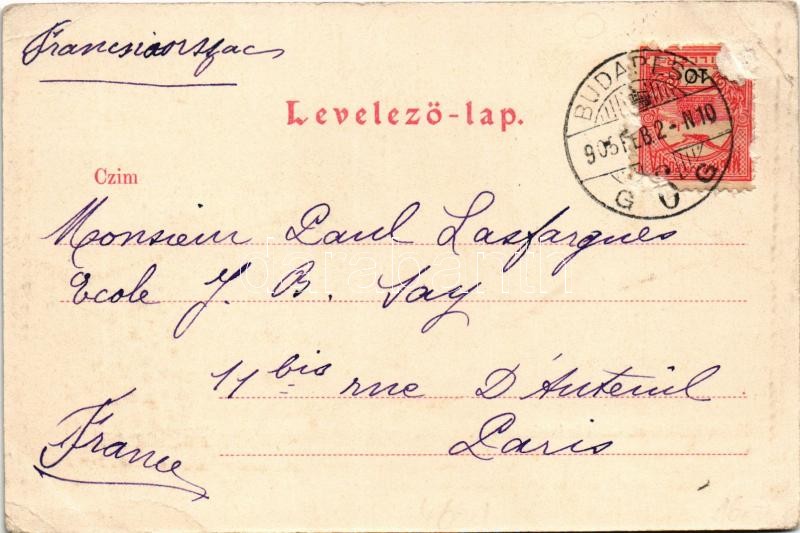 Francsiaorszac
Levelező-lap.
BUDAPEST
905 FEB. 2 - N 10
10
Czim
Monsieur Paul Lasfargues
Ecole J. B. Say
11 bis rue D'Auteuil
Paris
France